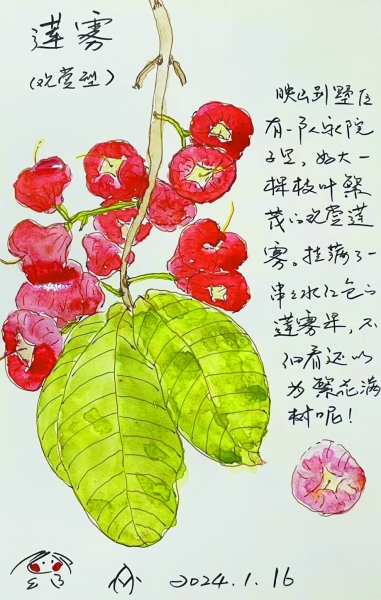 莲雾
(观赏型)
映山别墅区
有一户人家院
子里，好大一
棵枝叶繁
茂的观赏莲
雾。挂满了一
串串水红色的
莲雾果，不
细看还以
为繁花满
树呢！
2024.1.16